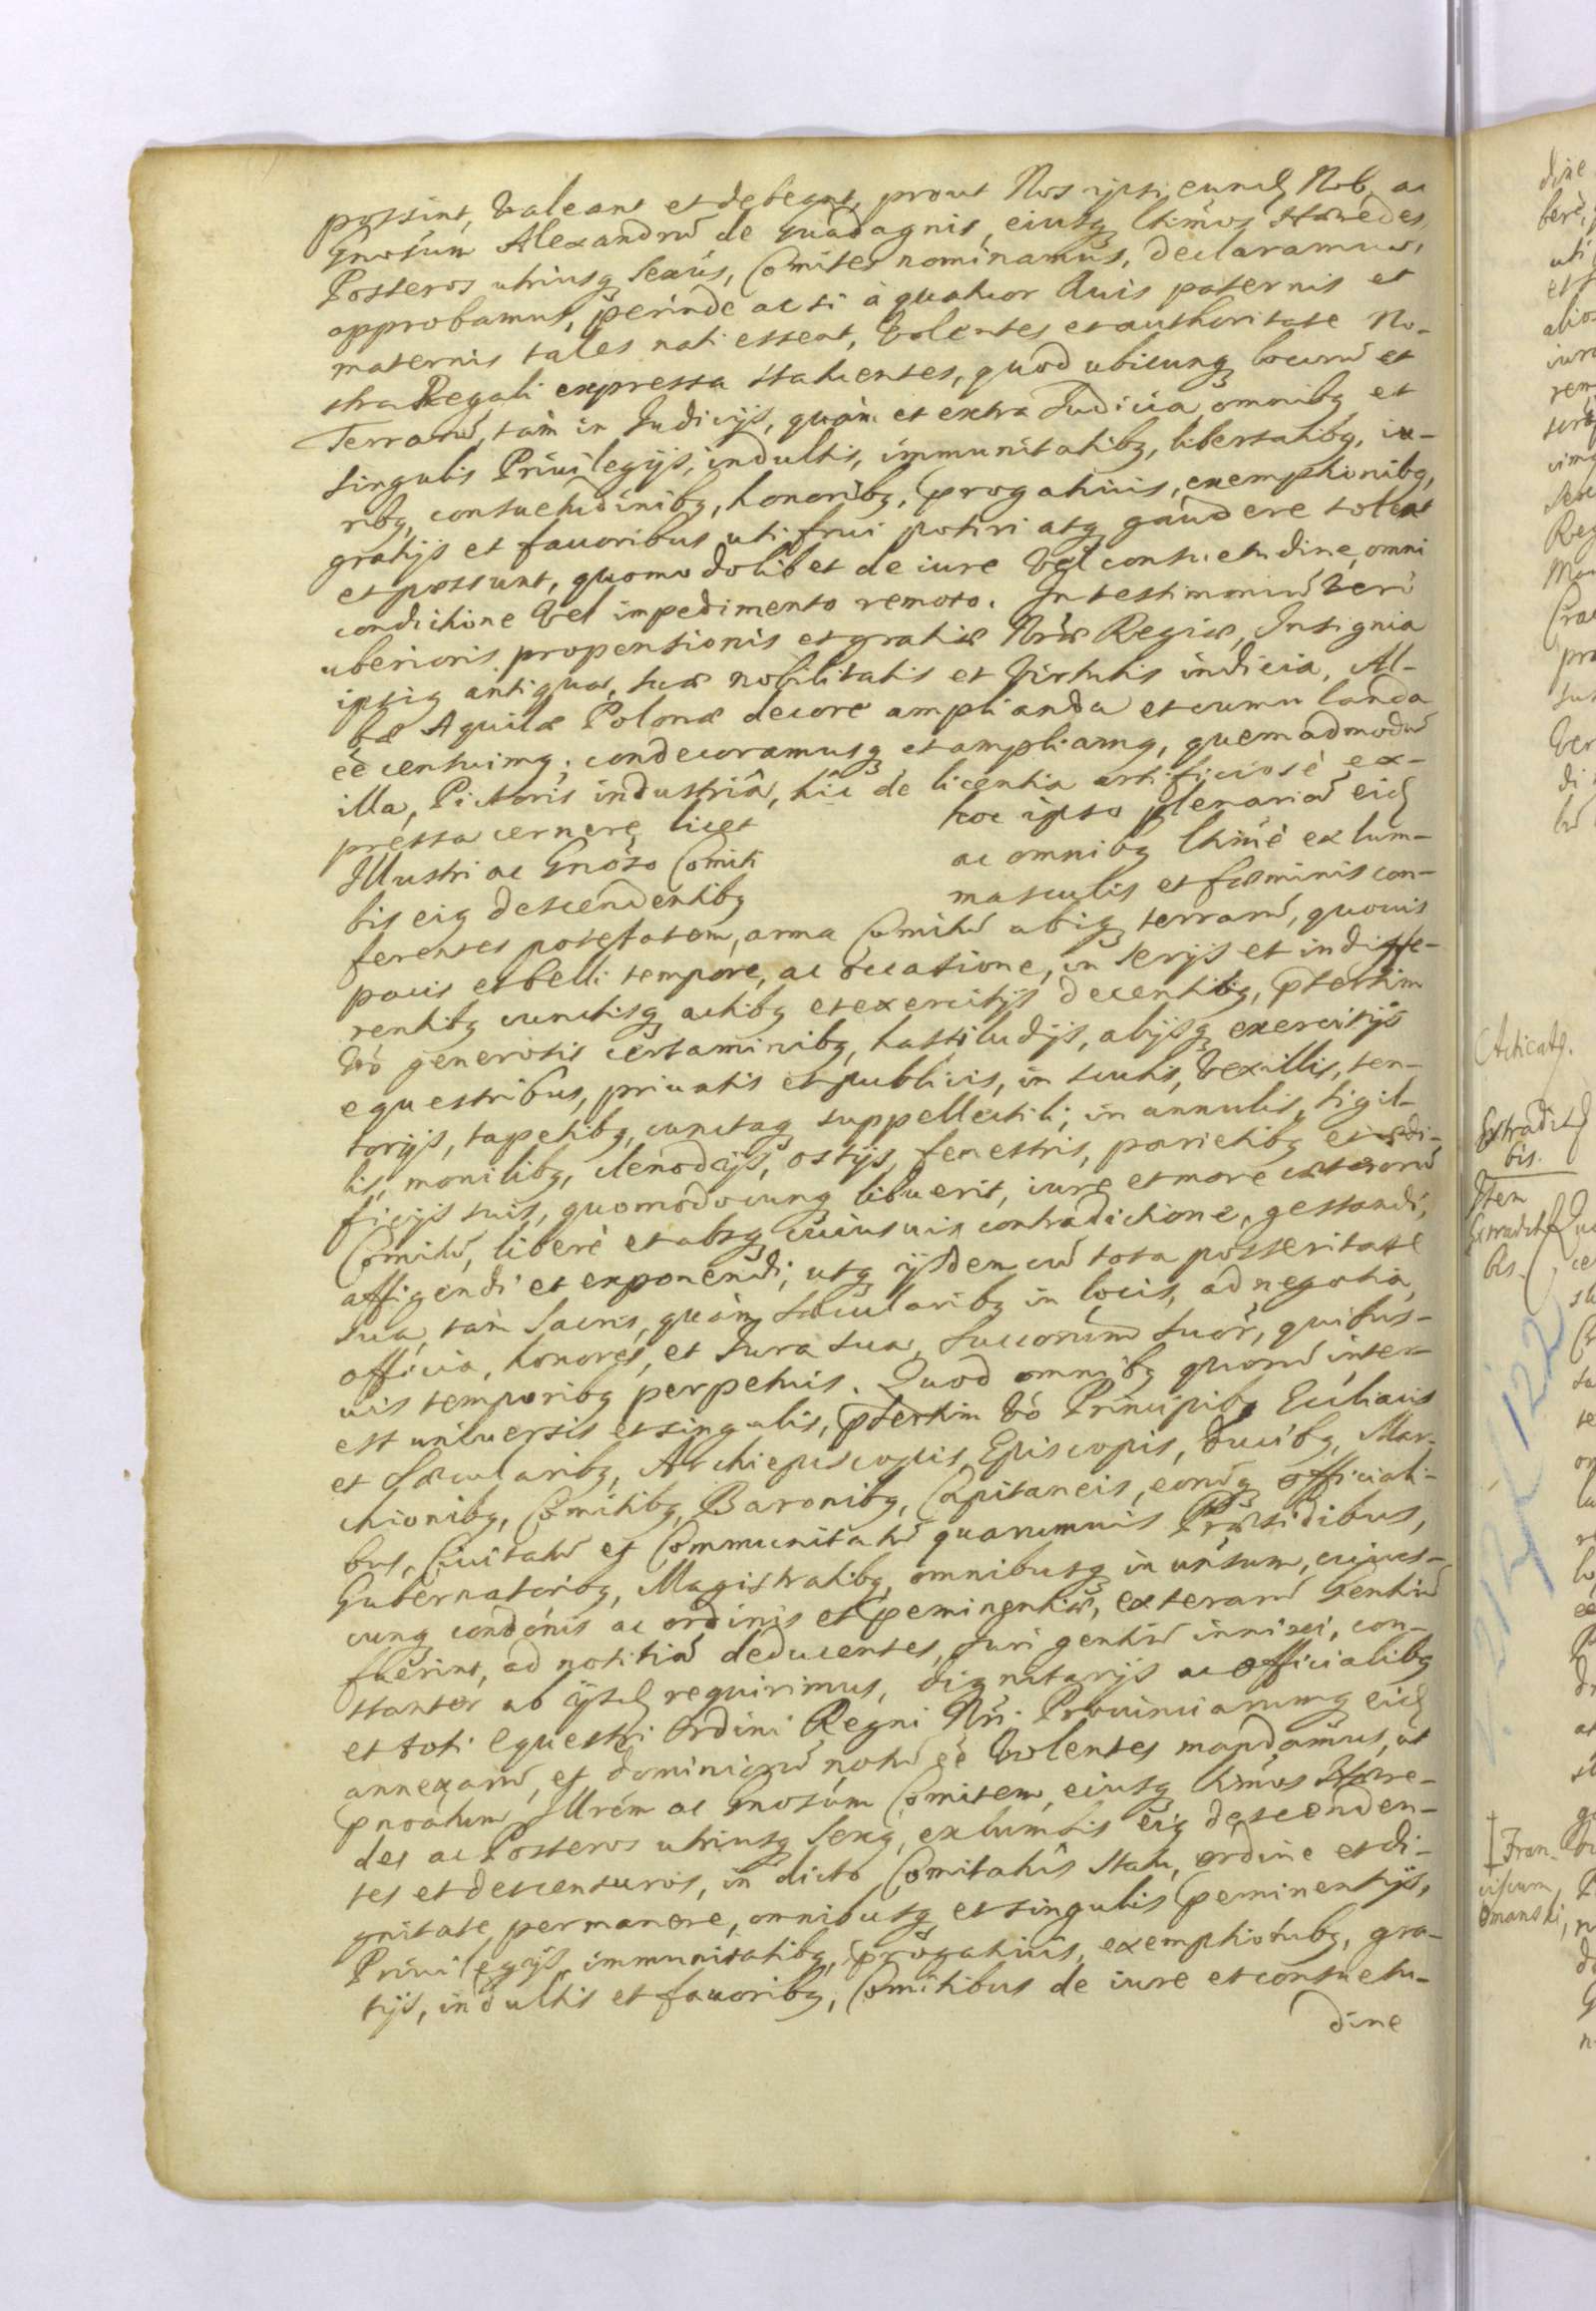 possint, valeant et debeant, prout Nos ipsi eund[em] Nob. ac
Gnosum Alexandrũ de Guadagnis, eiusq3 ltimos Hæredes
Posteros utriusq3 sexus, Comites nominamus, declaramus,
approbamus, perinde ac si à quatuor Auis paternis et
maternis tales nati essent, Volentes et authoritate No-
stra Regali expressa statuentes, quod ubicunq3 locorũ et
Terrarũ, tàm in Judicijs, quàm et extra Judicia omnibq3 et
singulis Priuilegijs, indultis, immunitatibq3, libertatibq3, iu-
ribq3, consuetudinibq3, honoribq3, progatiuis, exemptionibq3,
gratijs et fauoribus uti frui potiri atq3 gaudere solent
et possunt, quomodolibet de iure vel consuetudine, omni
conditione vel impedimento remoto. In testimoniũ verò
uberioris propensionis et gratiæ Nræ Regiæ, Insignia
ipsiq3 antiqua, suæ nobilitatis et Virtutis indicia, Al-
bæ Aquilæ Polonæ decore amplianda et cumulanda
ēē censuimq3; condecoramusq3 et ampliamq3, quemadmodũ
illa, Pictoris industriâ, hic de licentia artificiosè ex-
pressa cernere licet hoc ipso plenariã eid[em]
Illustri ac Gnoso Comiti ac omnibq3 ltimè ex lum-
bis eiq3 descendentibq3 masculis et fæminis con-
ferentes potestatem, arma Comitũ ubiq3 terrarũ, quouis
pacis et belli tempore, ac occasione, in serijs et indiffe-
rentibq3 cunctisq3 actibq3 et exercitijs decentibq3, psertim
vò generosis certaminibq3, hastiludijs, alijsq3 exercitijs
equestribus, priuatis et publicis, in scutis, Vexillis, ten-
torijs, tapetibq3, cunctaq3 suppellectili; in annulis, sigil-
lis, monilibq3, clenodijs, ostijs, fenestris, parietibq3 et ædi-
ficijs suis, quomodocunq3 libuerit, iure et more cæterorũ
Comitũ, liberè et absq3 cuiusuis contradictione, gestandi,
affigendi et exponendi; utq3 ijsdem cũ tota posteritate
sua, tàm Sacris, quàm Sæcularibq3 in locis, ad negotia,
officia, honores, et Jura sua, Successorum suor, quibus-
uis temporibq3 perpetuis. Quod omnibq3 quorũ inter-
est uniuersis et singulis, psertim vò Principibq3 Ecclīacis
et Sæcularibq3, Archiepiscopis, Episcopis, Ducibq3, Mar-
chionibq3, Comitibq3, Baronibq3, Capitaneis, eorũq3 officiali-
bus, Ciuitatũ et Communitatũ quarumuis Præsidibus,
Gubernatoribq3, Magistratibq3, omnibusq3 in uniūsum, cujus-
cunq3 condōnis ac ordinis et peminentiæ, exterarũ Gentiũ
fuerint, ad notitiã deducentes, Juri gentiũ innixi, con-
stanter ab ijsd[em] requirimus, dignitarijs ac officialibq3
et toti Equestri Ordini Regni Nri Prouinciarumq3 eid[em]
annexarũ, et dominiorũ notũ ēē Volentes mandamus, ut
pnoatum Illrem ac Gnosum Comitem, eiusq3 ltimos Hære-
des ac Posteros utriusq3 Sexq3, ex lumbis eiq3 descenden-
tes et descensuros, in dicto Comitatûs statu, ordine et di-
gnitate, permanere, omnibusq3 et singulis peminentijs,
Priuilegijs, immunitatibq3, progatiuis, exemptionibq3, gra-
tijs, indultis et fauoribq3, Comitibus de iure et consuetu-
dine
Acticatq3.
Extradit[um]
bis.
Item
Extradit[um]
bis.
122
Fran-
ciscum